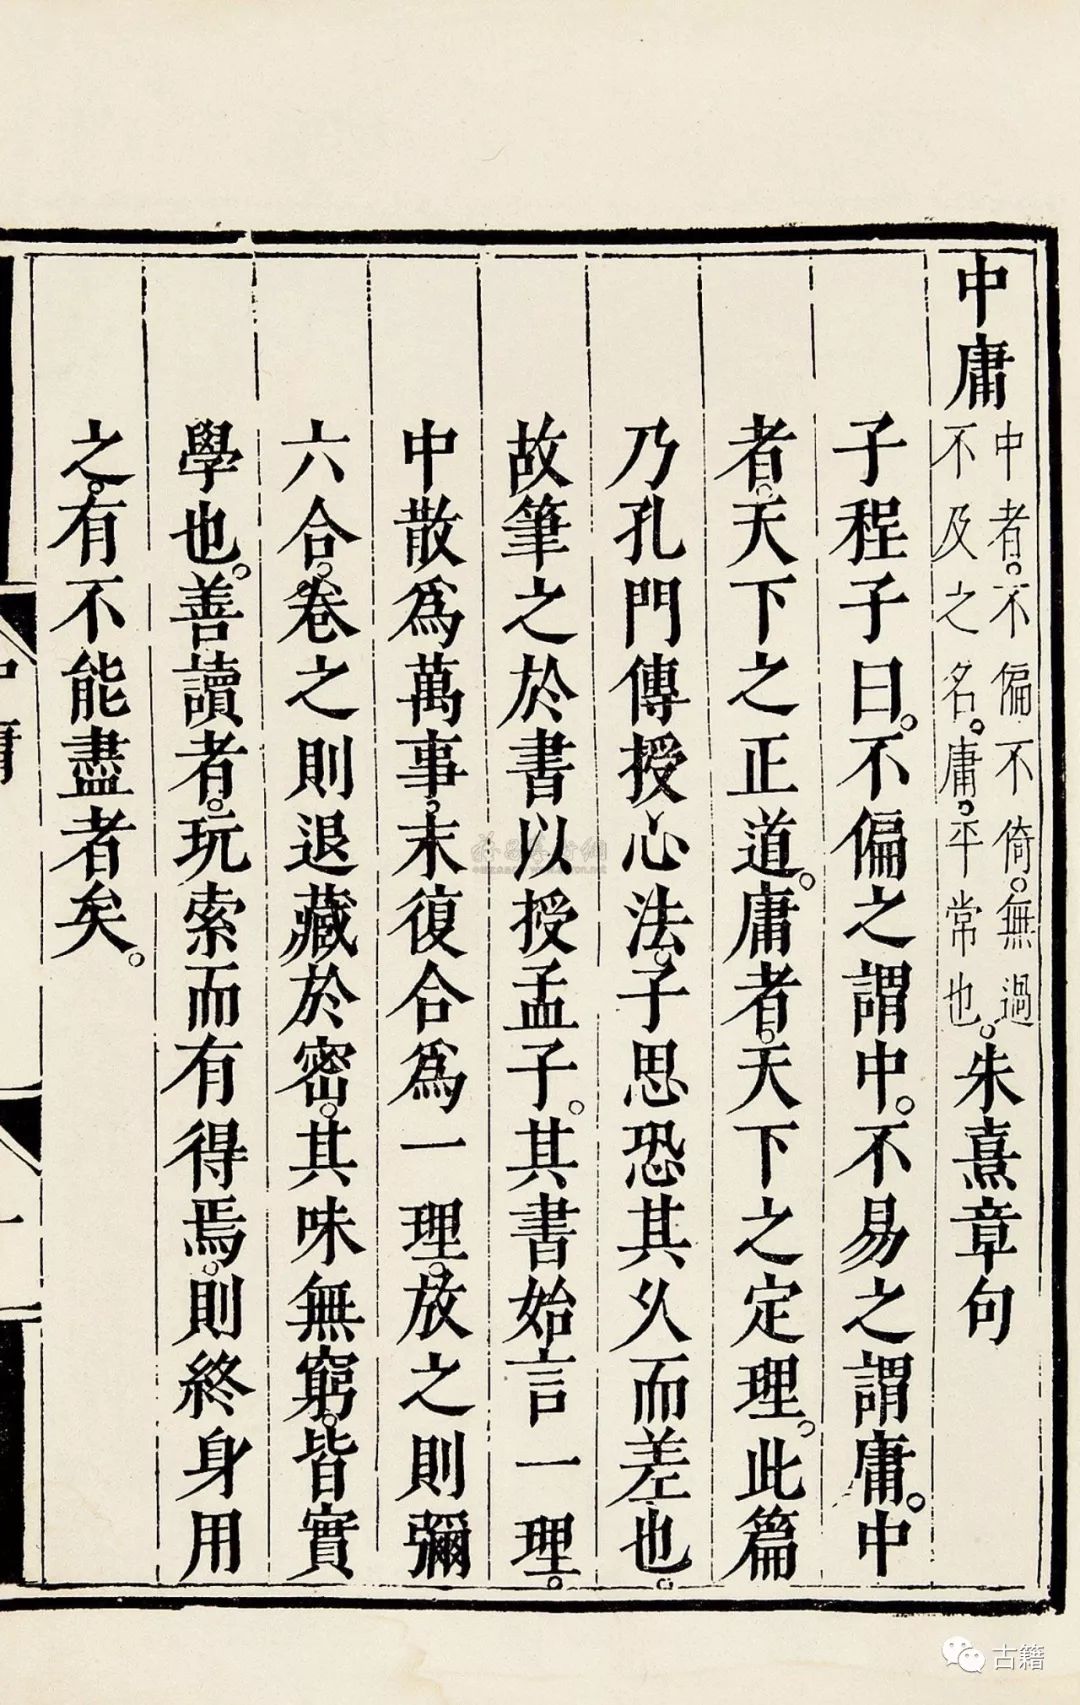 中庸中者。不偏不倚。無過不及之名。庸。平常也。朱熹章句
子程子曰。不偏之謂中。不易之謂庸。中
者。天下之正道。庸者。天下之定理。此篇
乃孔門傳授心法。子思恐其久而差也。
故筆之於書以授孟子。其書始言一理。
中散爲萬事。末復合爲一理。放之則彌
六合。卷之則退藏於密。其味無窮。皆實
學也。善讀者。玩索而有得焉。則終身用
之。有不能盡者矣。
中庸
一
古籍